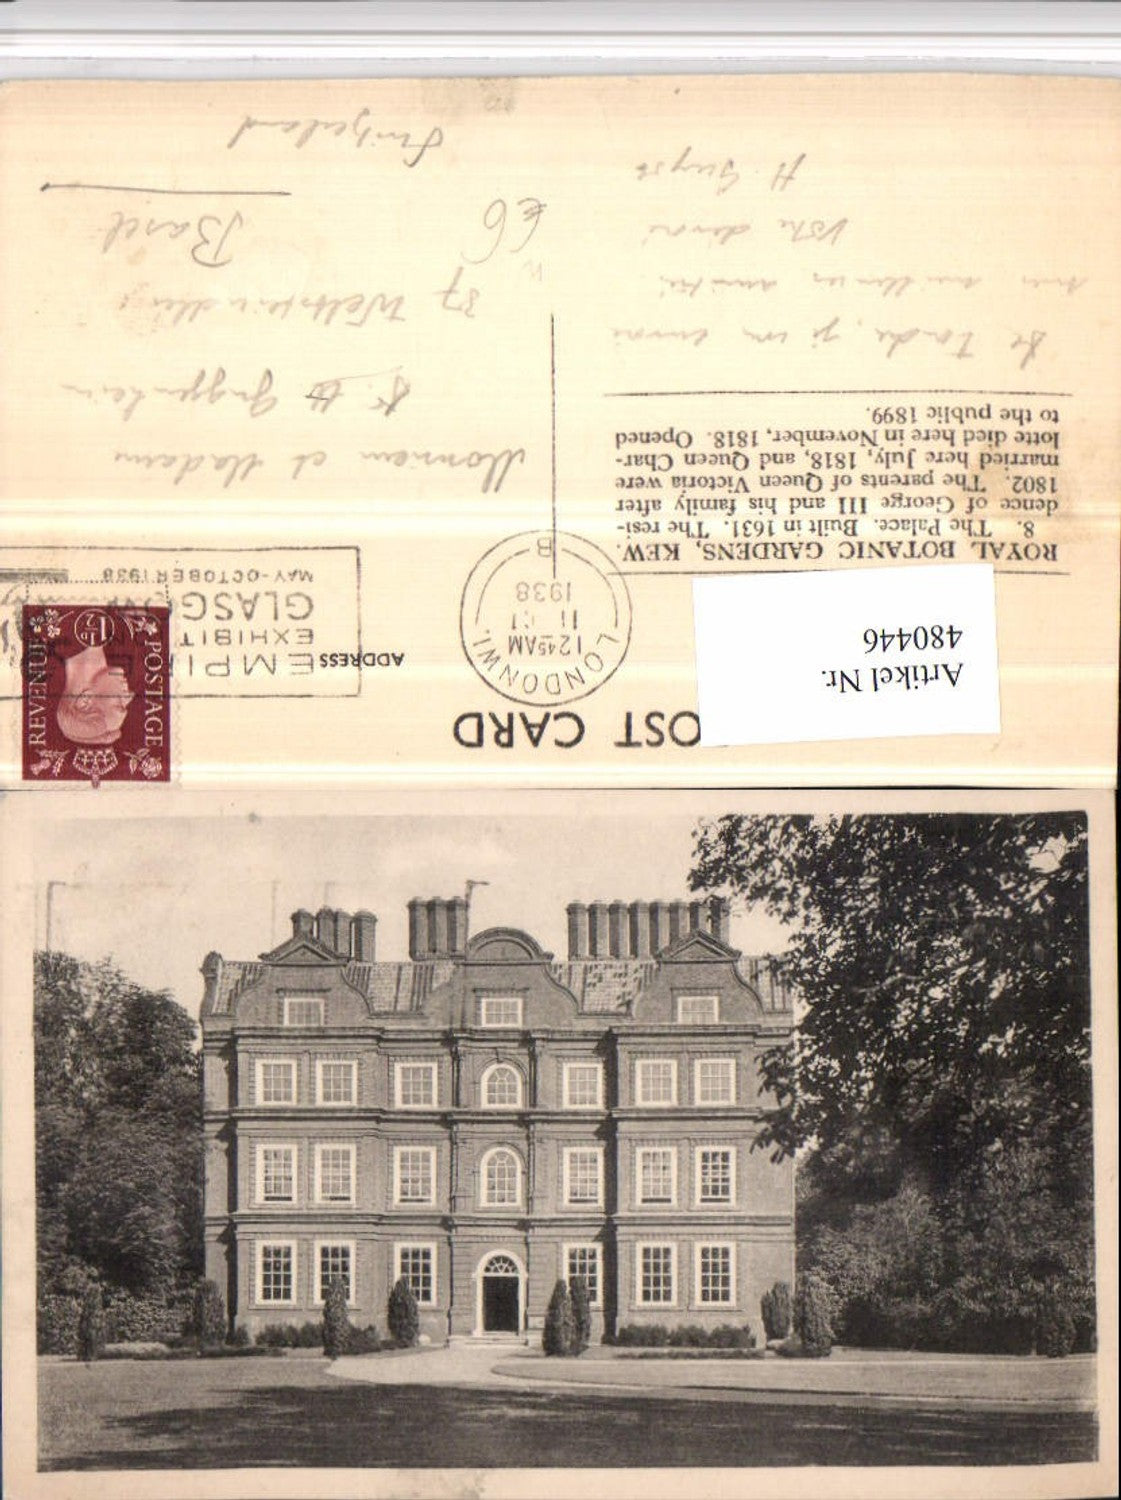 POST CARD
Artikel Nr.
480446
ADDRESS
LONDON W1.
12 45 AM
1938
B
EMPIRE
EXHIBIT
GLASGOW
MAY-OCTOBER 1938
POSTAGE
REVENUE
1½D
ROYAL BOTANIC GARDENS, KEW.
8. The Palace. Built in 1631. The resi-
dence of George III and his family after
1802. The parents of Queen Victoria were
married here July, 1818, and Queen Char-
lotte died here in November, 1818. Opened
to the public 1899.
Monsieur et Madame
Guggenheim
37
Basel
Switzerland
€6